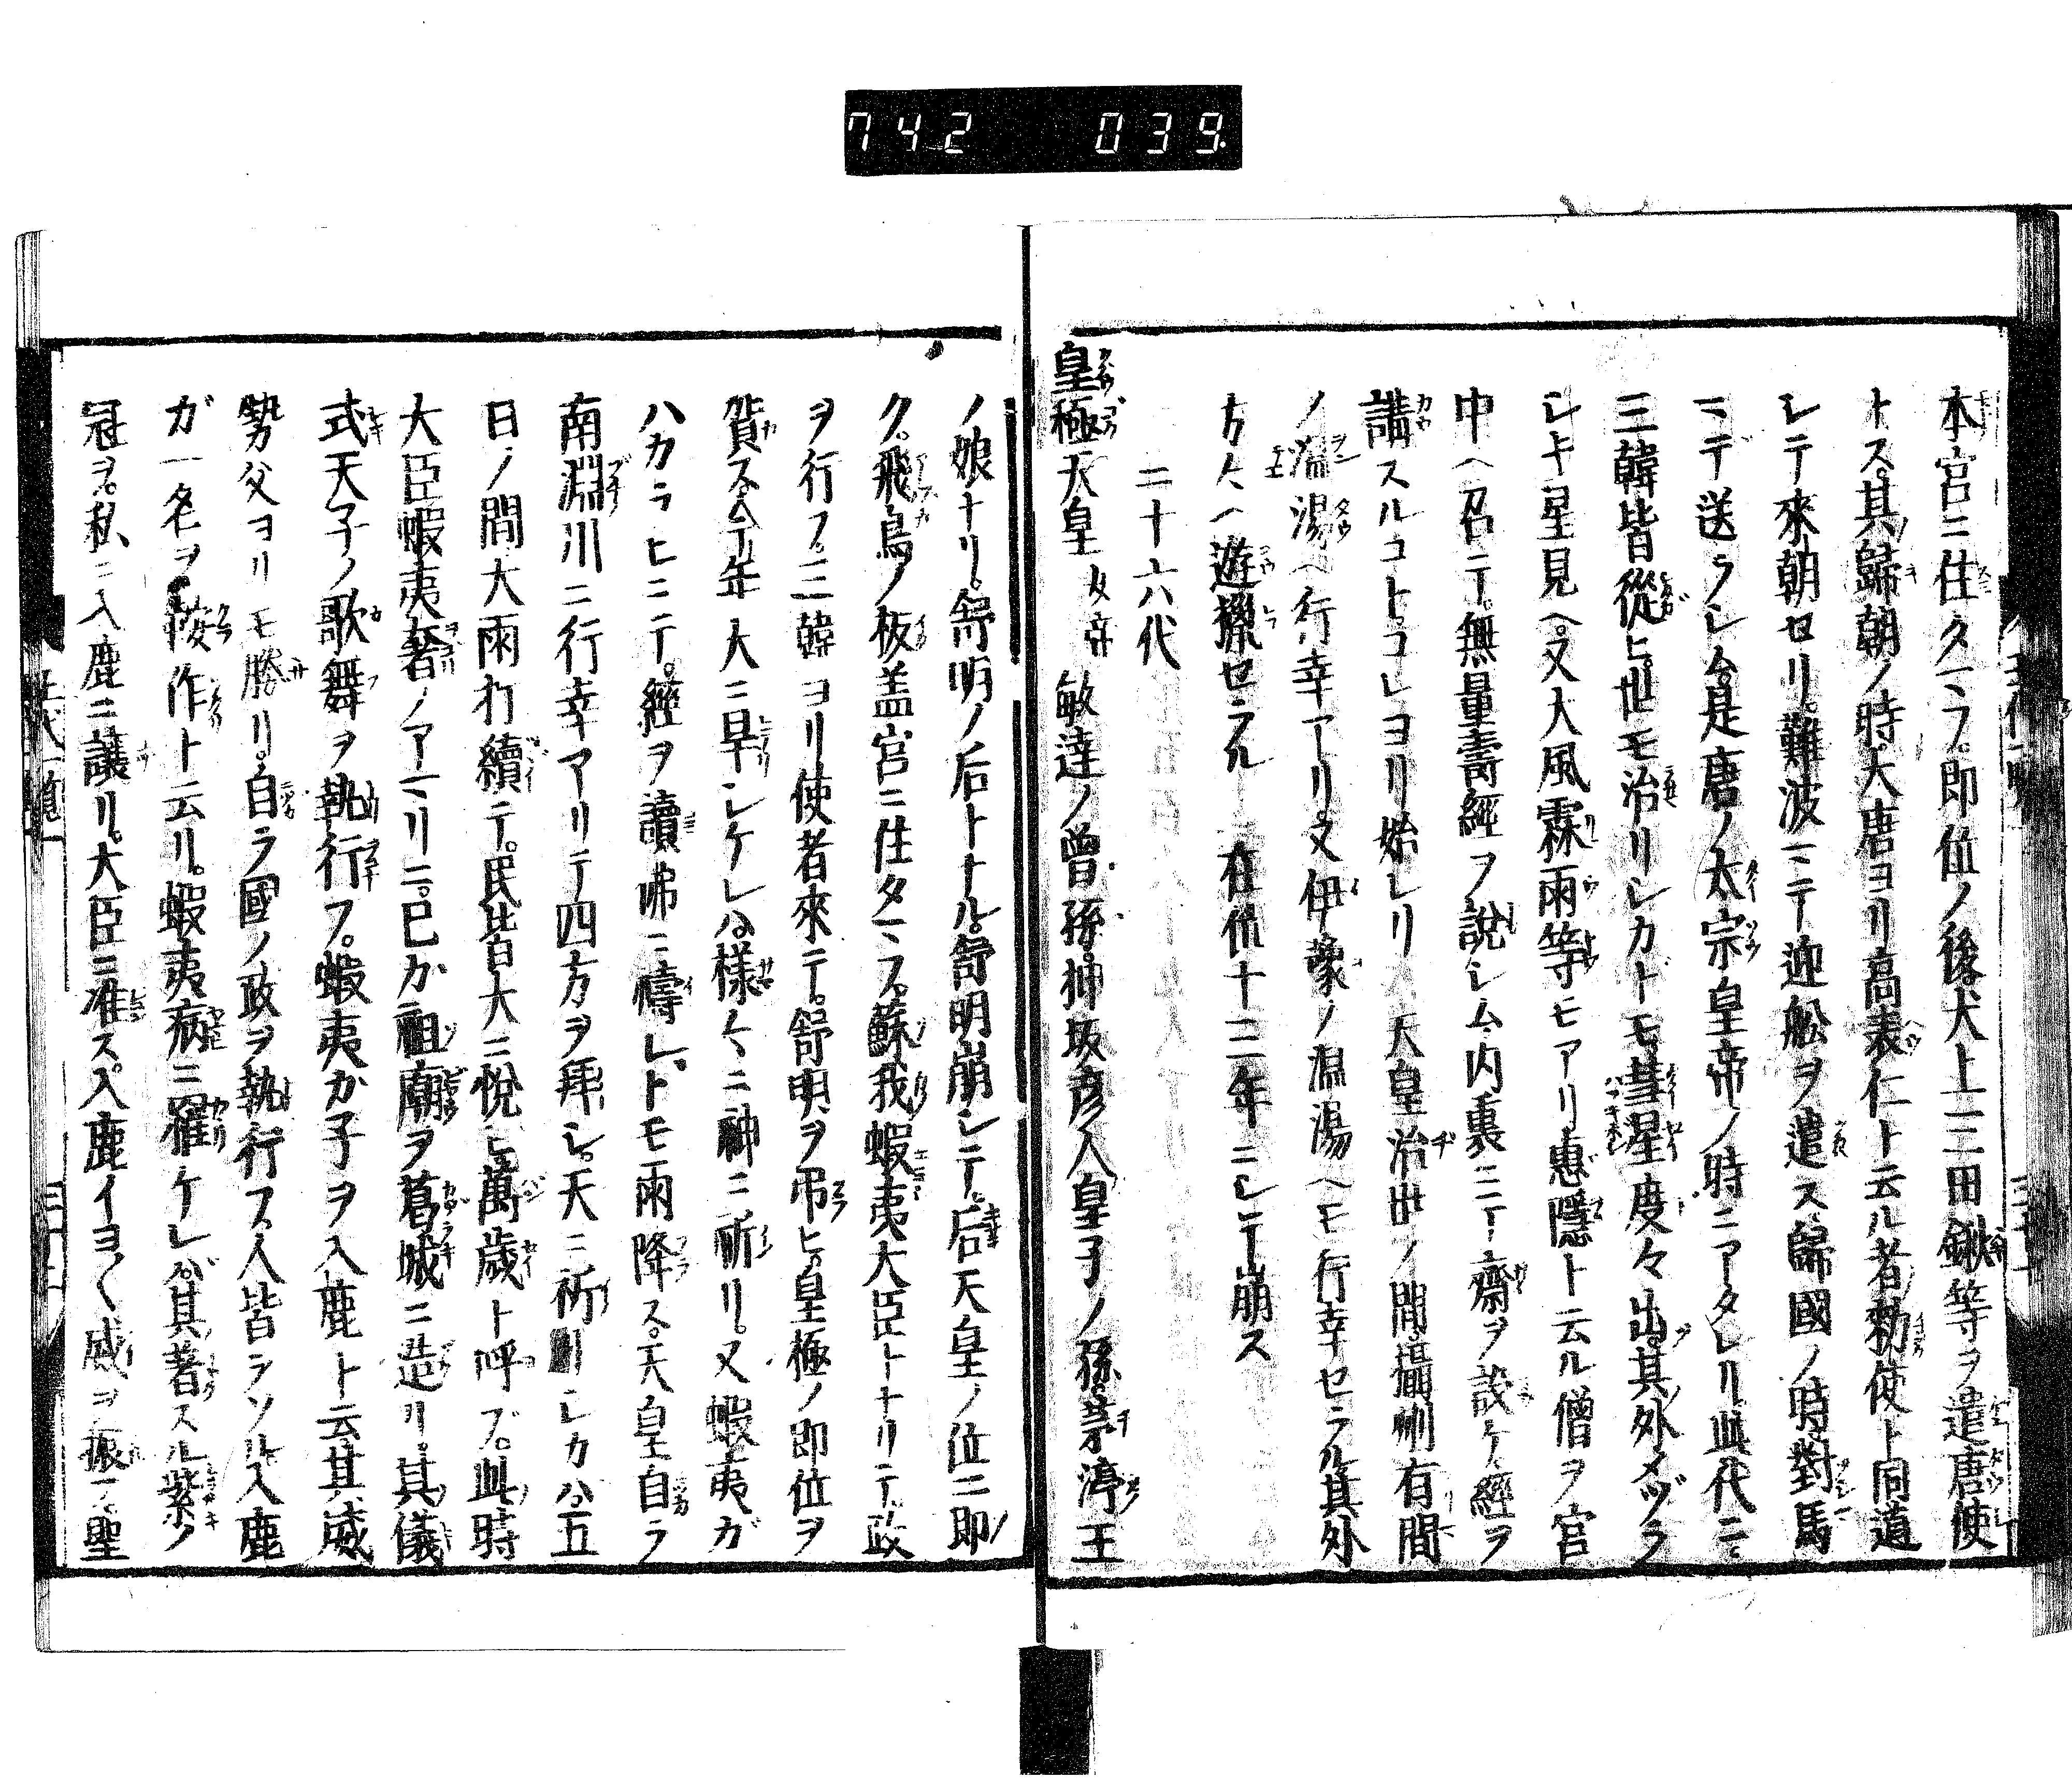 742 039
本宮ニ住タマフ。即位ノ後。犬上三田鍬等ヲ遣唐使
トス。其歸朝ノ時。大唐ヨリ高表仁ト云ル者勅使ト同道
シテ來朝セリ。難波マテ迎舩ヲ遣ス。歸國ノ時。對馬
マデ送ラシム。是唐ノ太宗皇帝ノ時ニアタレリ。此代ニモ
三韓皆從ヒ。世モ治リシカドモ彗星度々出。其外メヅラ
シキ星見ヘ。又大風霖雨等モアリ惠隱ト云ル僧ヲ宮
中ヘ召ニテ。無量壽經ヲ說シム。内裏ニテ齋ヲ設ケ。經ヲ
講スルコト。コレヨリ始レリ 天皇治世ノ間。攝州有間
ノ温湯ヘ行幸アリ。又伊豫ノ温湯ヘモ行幸セラル。其外
方々ヘ遊獵セラル 在位十三年ニシテ崩ス
二十六代
皇極天皇 女帝 敏達ノ曾孫。押坂彦人皇子ノ孫。茅渟王
ノ娘ナリ。舒明ノ后トナル。舒明崩シテ。后天皇ノ位ニ即
ク。飛鳥ノ板盖宮ニ住タマフ。蘇我蝦夷大臣トナリテ。政
ヲ行フ。三韓ヨリ使者來テ。舒明ヲ吊ヒ。皇極ノ即位ヲ
賀ス。今年大ニ旱シケレハ。様々ニ神ニ祈リ。又蝦夷ガ
ハカラヒニテ。經ヲ讀佛ニ禱レトモ雨降ス。天皇自ラ
南淵川ニ行幸アリテ四方ヲ拜シ。天ニ祈リシカハ。五
日ノ間大雨打續テ。民皆大ニ悅ヒ萬歳ト呼ブ。此時
大臣蝦夷奢ノアマリニ。己カ祖廟ヲ葛城ニ造リ。其儀
式天子ノ歌舞ヲ執行フ。蝦夷カ子ヲ入鹿ト云其威
勢父ヨリモ勝リ。自ラ國ノ政ヲ執行フ。人皆ヲソル。入鹿
ガ一名ヲ鞍作ト云リ。蝦夷病ニ罹ケレバ。其著スル紫ノ
冠ヲ。私ニ入鹿ニ讓リ。大臣ニ准ス。入鹿イヨ〱威ヲ振テ。聖